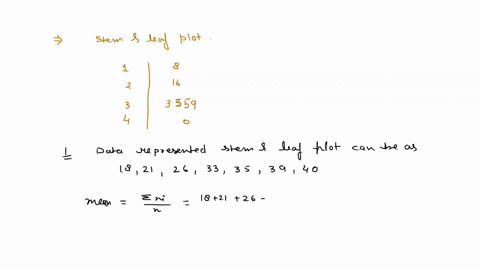 ⇒ Stem & leaf plot .
1 | 8
2 | 16
3 | 3559
4 | 0
1 Data represented stem & leaf plot can be as
18, 21, 26, 33, 35, 39, 40
mean = Σxi/n = 18+21+26-